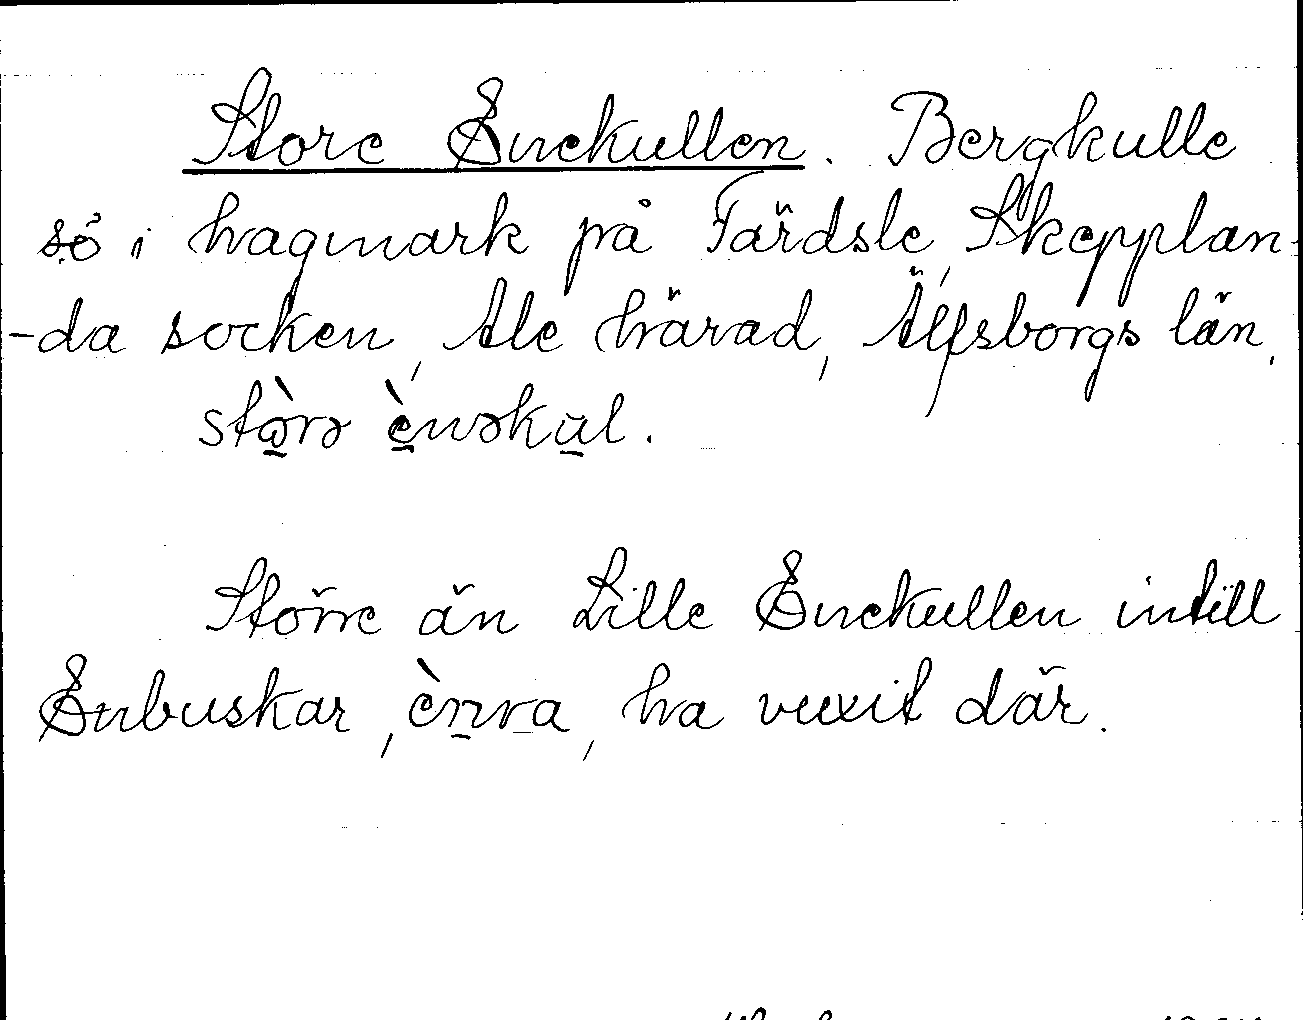 Store Enekullen. Bergkulle
sö i hagmark på Färdsle, Skepplan-
-da socken, Ale härad, Älfsborgs län.
stòrə ènəkul.
Större än Lille Enekullen intill
Enbuskar, ènra, ha vuxit där.